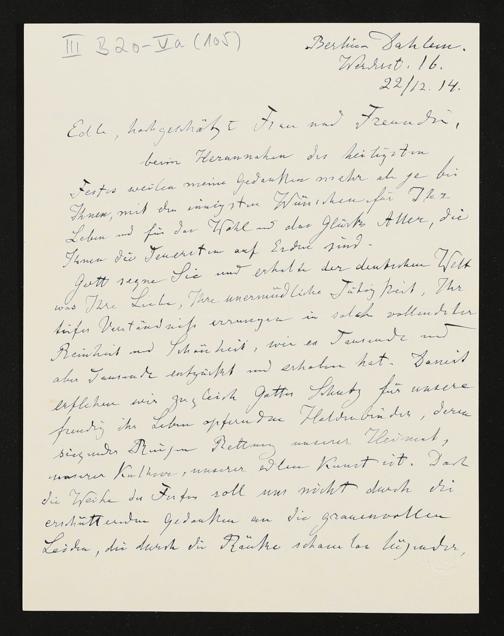 III B 20-Va (105)
Berlin Dahlem.
Werderst. 16.
22/12. 14.
Edle, hochgeschätzt Frau und Freundin,
beim Herannahen des heiligsten
Festes weilen meine Gedanken mehr als je bei
Ihnen, mit den innigsten Wünschen für Ihr
Leben und für das Wohl und das Glück Aller, die
Ihnen die Teuersten auf Erden sind.
Gott segne Sie und erhalte der deutschen Welt
was Ihre Liebe, Ihre unermüdliche Tätigkeit, Ihr
tiefes Verständniss errungen in solch vollendeter
Reinheit und Schönheit, wie es Tausende und
aber Tausende entzückt und erhoben hat. Damit
erflehen wir zugleich Gottes Schutz für unsere
freudig ihr Leben opfernden Heldenbrüder, deren
Ringen Rettung unserer Heimat,
unserer Kultur, unserer edlen Kunst ist. Doch
die Weihe des Festes soll uns nicht durch die
erschütternden Gedanken an die grauenvollen
Leiden, die durch die Ränke schamlos